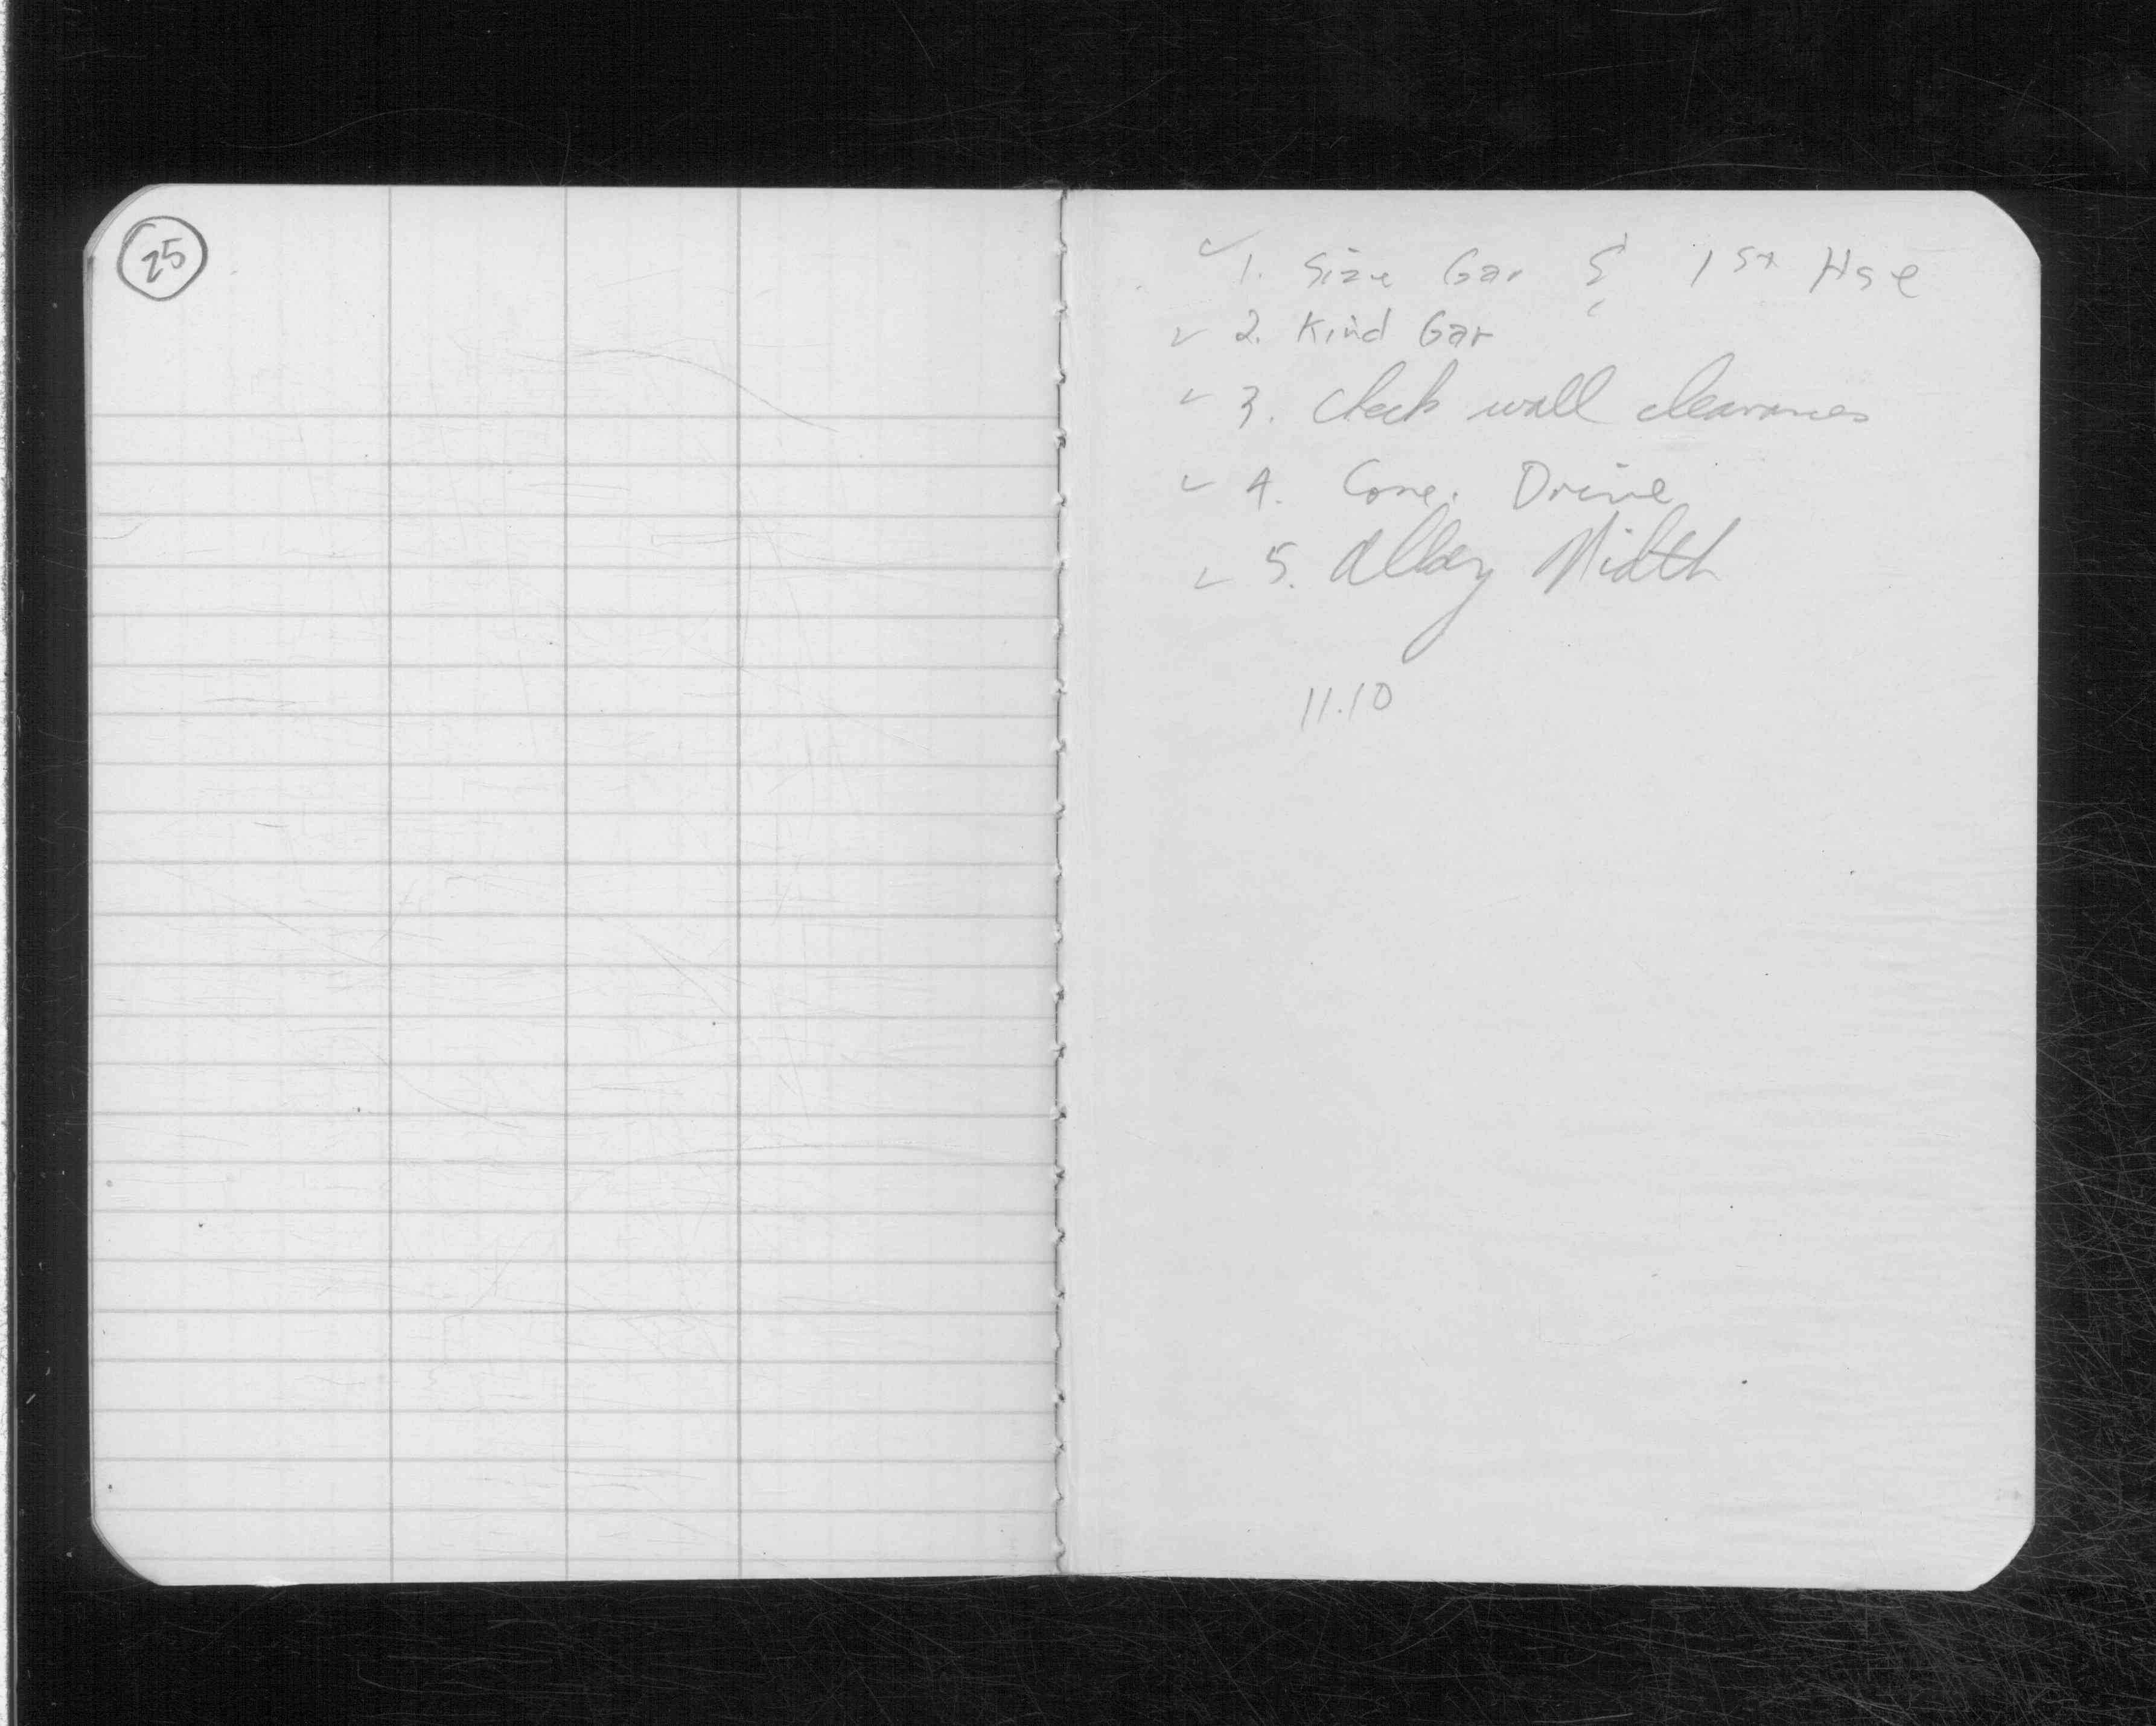 25
✓ 1. Size Gar & 1st Hse
✓ 2. Kind Gar
✓ 3. Check wall clearances
✓ 4. Conc. Drive
✓ 5. Alley Width
11.10